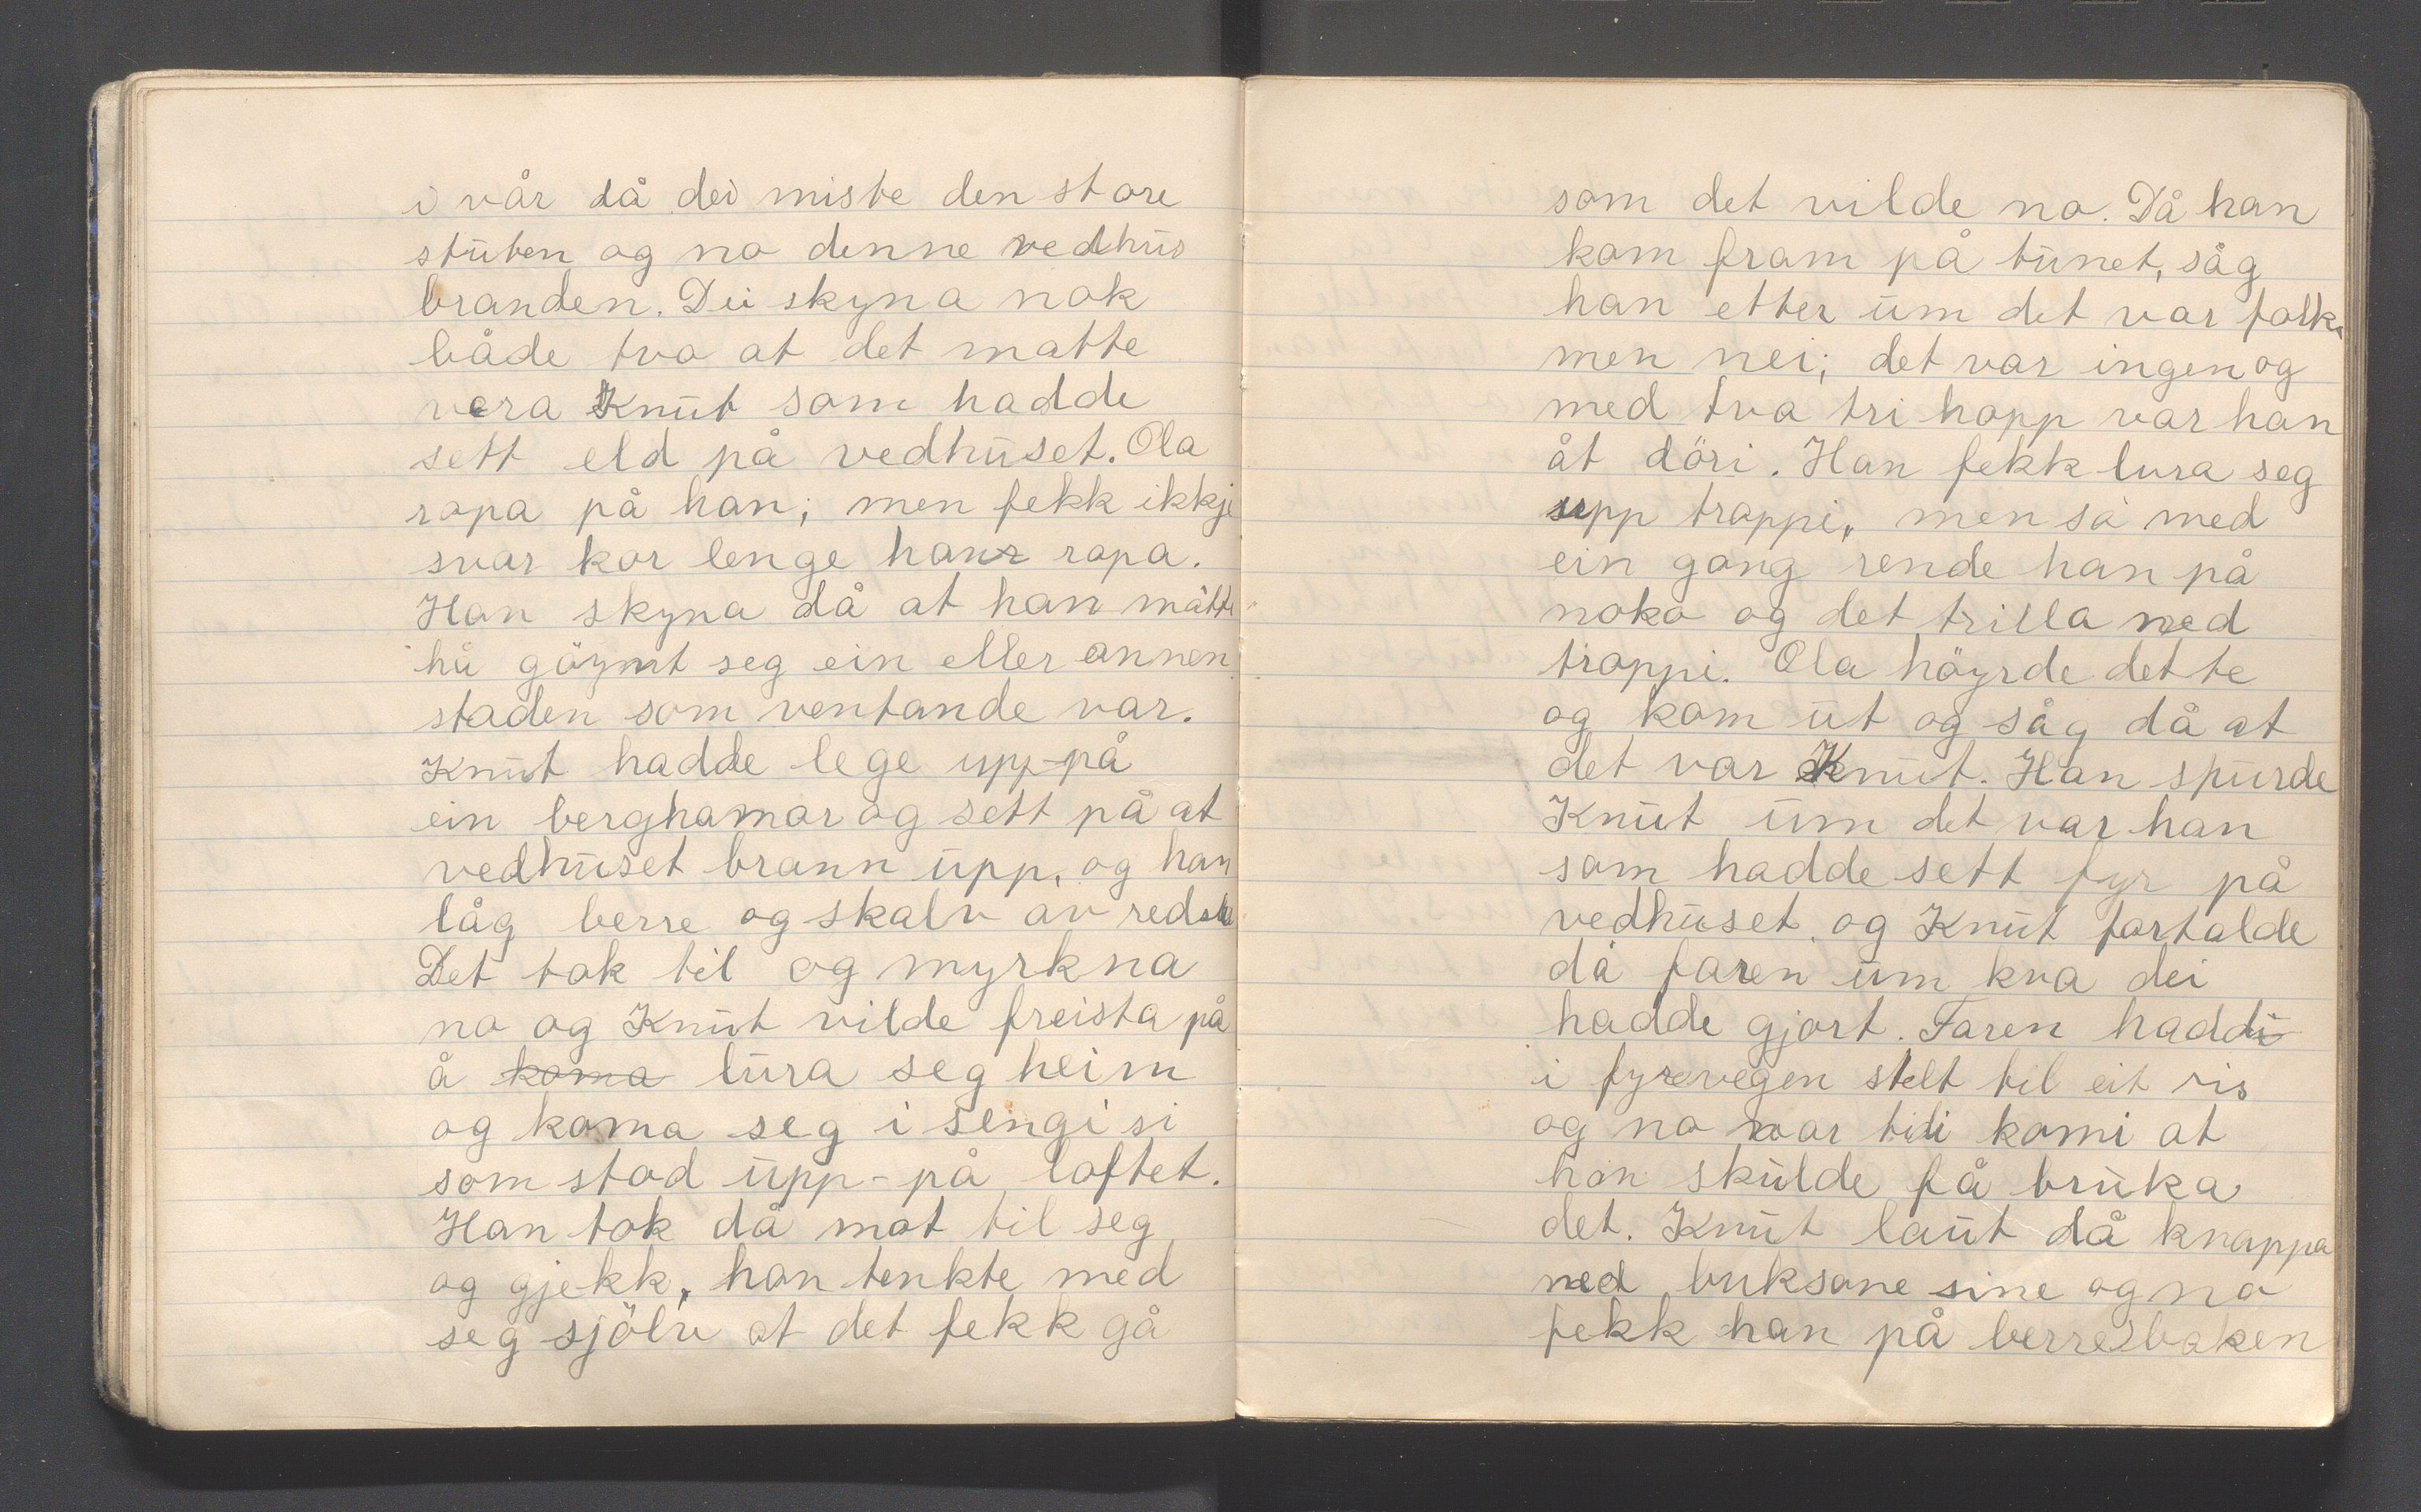 i vår då dei miste den store
stuten og no denne vedhus
branden. Dei skyna nok
både tvo at det matte
vera Knut som hadde
sett eld på vedhuset. Ola
ropa på han; men fekk ikkje
svar kor lenge han ropa.
Han skyna då at han måtte
hå göymt seg ein eller annen
staden som ventande var.
Knut hadde lege upp-på
ein berghamar og sett på at
vedhuset brann upp, og han
låg berre og skalv av redsla
Det tok til og myrkna
no og Knut vilde freista på
å koma lura seg heim
og koma seg i sengi si
som stod upp-på loftet.
Han tok då mot til seg
og gjekk, han tenkte med
seg sjölv at det fekk gå
som det vilde no. Då han
kom fram på tunet, såg
han etter um det var folk,
men nei; det var ingen og
med tvo tri hopp var han
åt döri. Han fekk lura seg
upp trappi, men så med
ein gong rende han på
noko og det trilla ned
trappi. Ola höyrde dette
og kom ut og såg då at
det var Knut. Han spurde
Knut um det var han
som hadde sett fyr på
vedhuset, og Knut fortalde
då faren um kva dei
hadde gjort. Faren hadde
i fyrevegen stelt til eit ris
og no var tidi komi at
han skulde få bruka
det. Knut laut då knappa
ned buksone sine og no
fekk han på berre baken